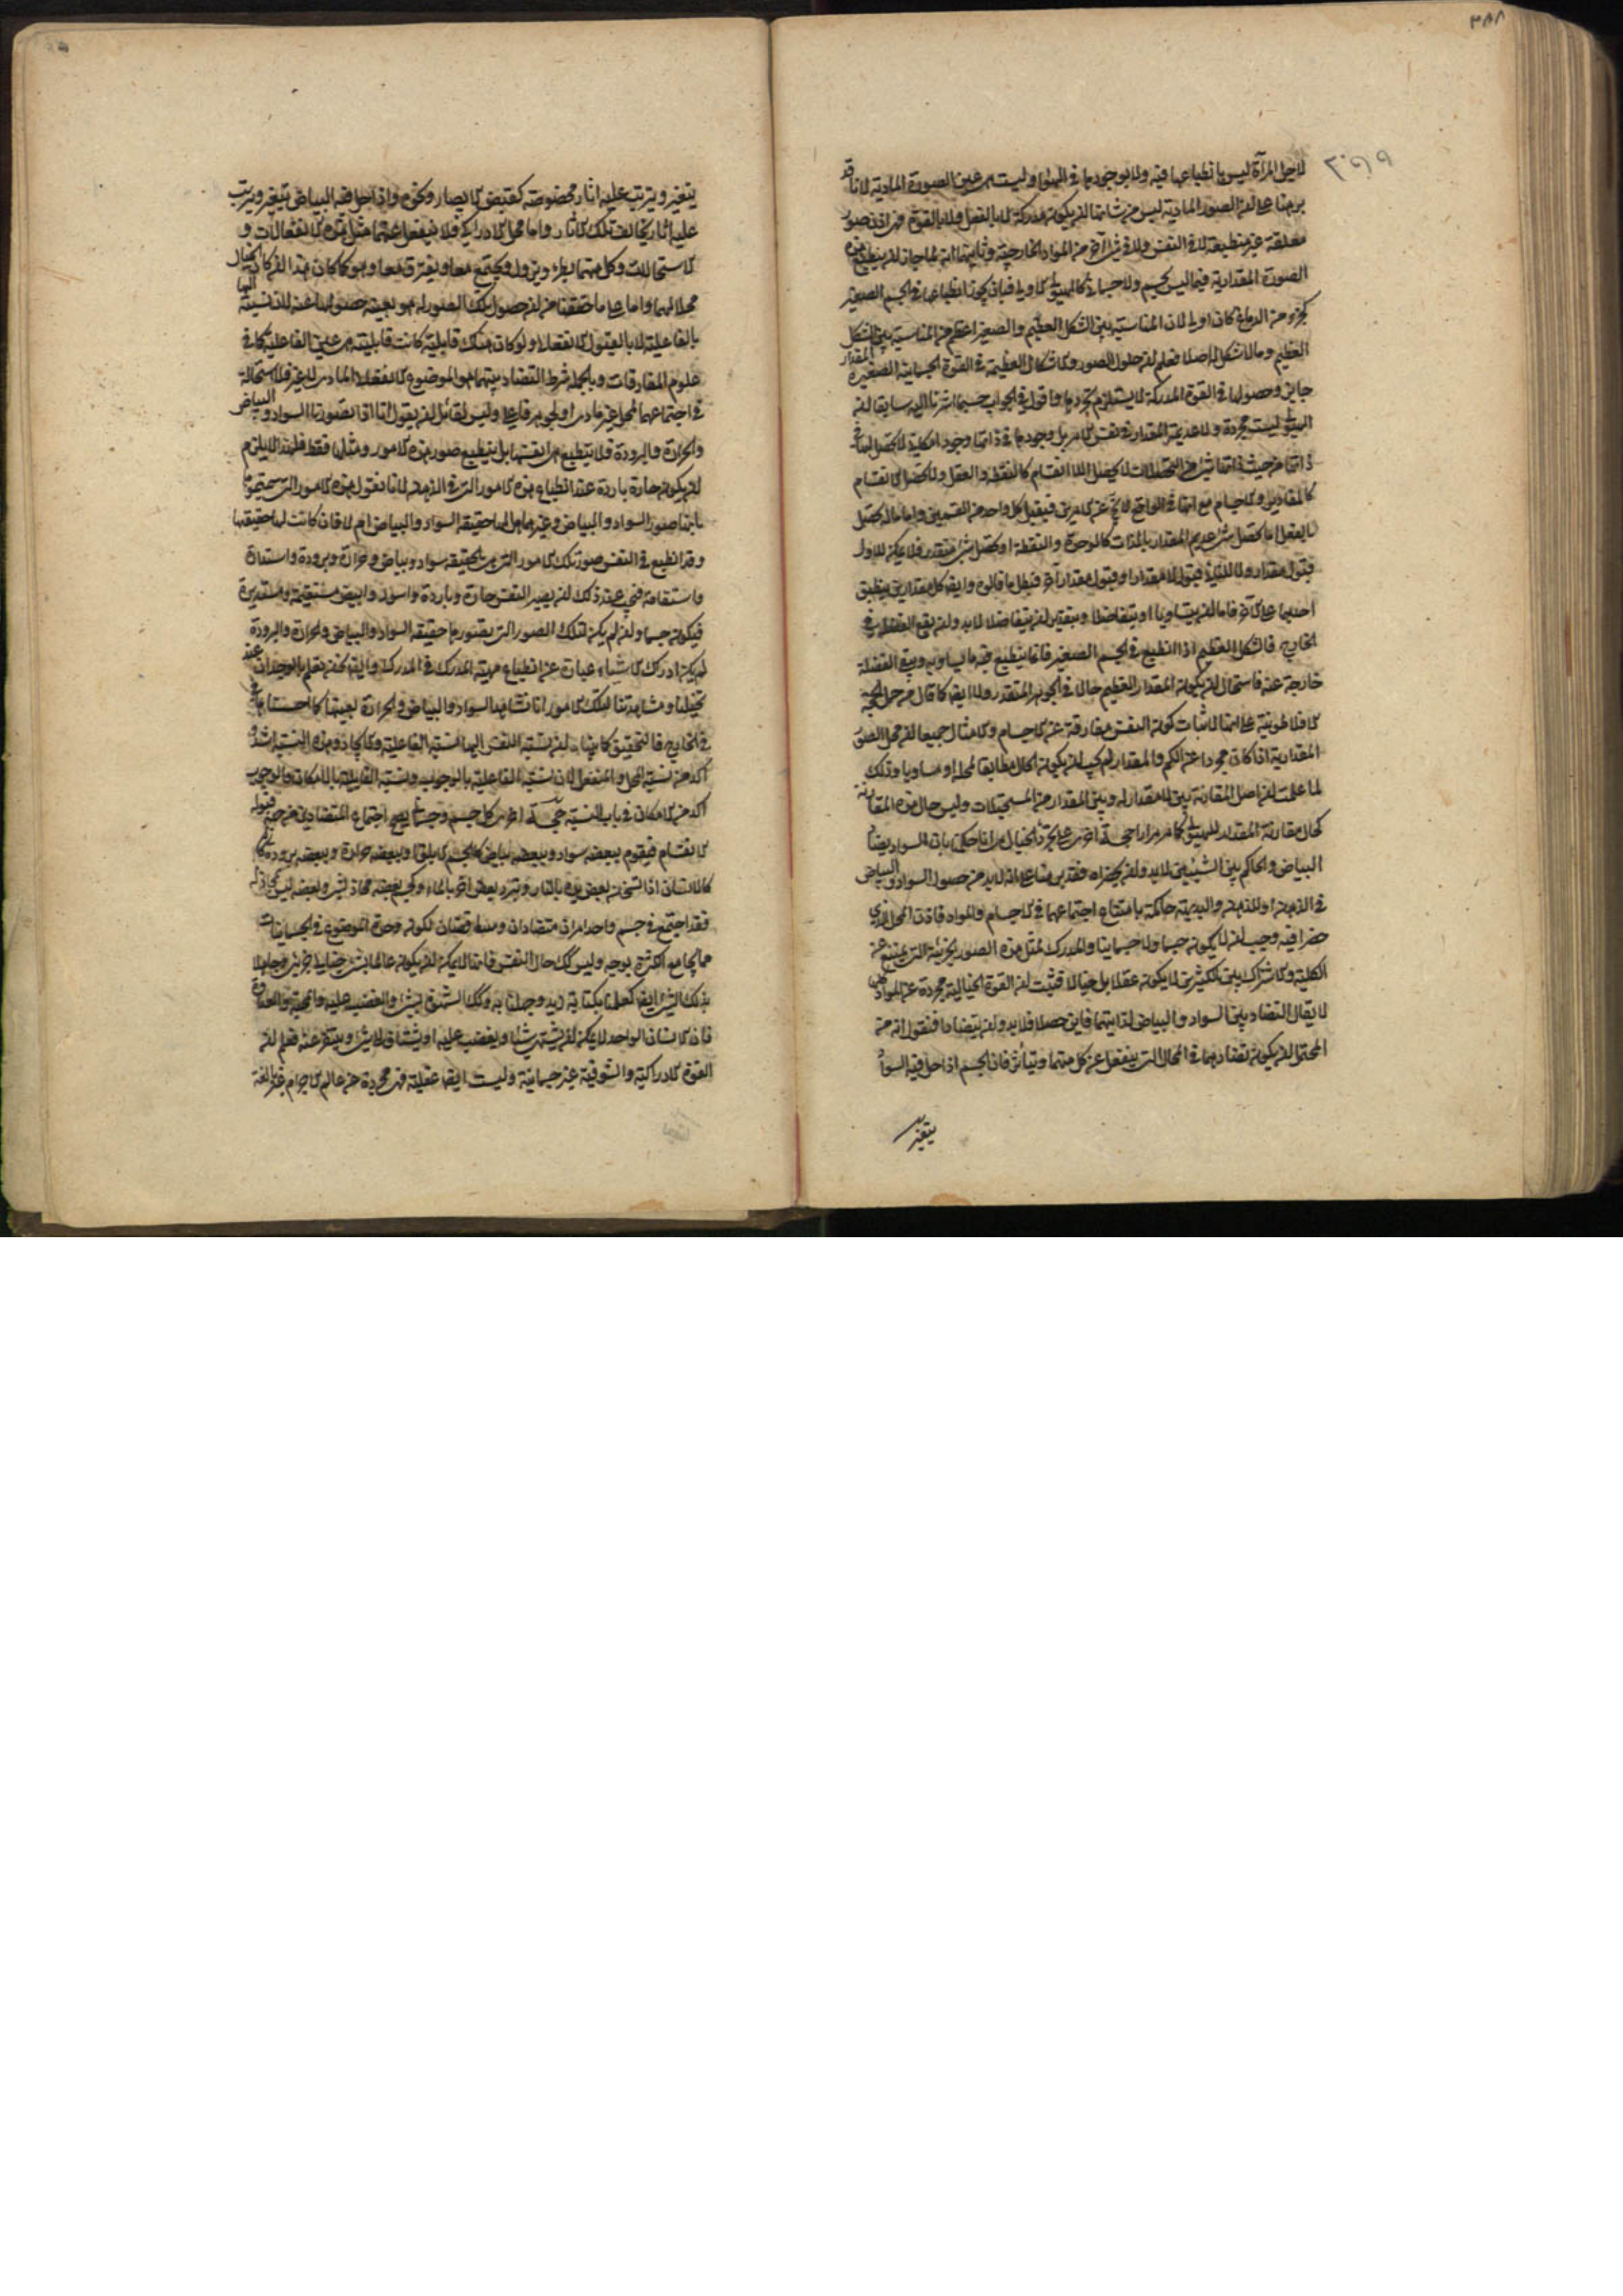 ٣٨٨
٣٠٩٩
لاجل المرآة ليس بانطباعها فيه ولا بوجودها في الهواء وليست هي عين الصورة المادية لانا قد
برهنا على ان الصور المادية ليس من شانها ان يكون مدركة لا بالفعل ولا بالقوة فهي اذن صور
معلقة غير منطبعة لا في النفس ولا في شئ آخر من المواد الخارجية وثانيهما انه لما جاز ان ينطبع هذه
الصورة المقدارية فيما ليس بجسم ولا جسماني كالهيولى الاولى فبان يجوز انطباعها في الجسم الصغير
كجزء من الدماغ كان اولى لان المناسبة بين الشكل العظيم والصغير اعظم من المناسبة بين الشكل
العظيم وما لا شكل له اصلا فعلم ان حلول الصور والاشكال العظيمة في القوة الجسمانية الصغيرة المقدار
جايز وحصولها في القوة المدركة لا يستلزم تجردها واقول في الجواب حسبما اشرنا اليه سابقا ان
الهيولى ليست مجردة ولا عديم المقدار في نفس الامر بل وجودها في ذاتها وجود امكاني لا تحصل لها في
ذاتها من حيث ذاتها بشئ من التحصلات لا تحصل اللا انقسام كالنقطة والعقل ولا تحصل الانقسام
كالمقادير والاجسام مع انها في الواقع لا يخ عن الامرين فيقبل كل واحد من القسمين واما ما له تحصل
بالفعل اما تحصل شئ عديم المقدار بالذات كالوحدة والنقطة او تحصل شئ متقدر فلا يمكن للاول
قبول مقدار ولا للثاني قبول اللا مقدار او قبول مقدار آخر فبطل ما قالوه وايضا كل مقدارين ينطبق
احدهما على الآخر فاما ان يتساويا او يتفاضلا وبتقدير ان يتفاضلا لا بد وان يقع الفضل في
الخارج فالشكل العظيم اذا انطبع في الجسم الصغير فانما ينطبع فيه ما يساويه ويبقى الفضلة
خارجة عنه فاستحال ان يكون المقدار العظيم حالا في الجوهر المتقدر ولا ايضا كما قال من حمل الحجة
الافلاطونية على انها لاثبات كون النفس مفارقة عن الاجسام والامثال جميعا ان محل الصور
المقدارية اذا كان مجردا عن الكم والمقدار لم يجب ان يكون الحال مطابقا لمحله او مساويا وذلك
لما علمت ان اصل المقارنة بين لا مقدار له وبين المقدار من المستحيلات وليس حال هذه المقارنة
كحال مقارنة المقدار للهيولى كما مر مرارا حجة اخرى على تجرد الخيال هي انا نحكم بان السواد يضاد
البياض والحاكم بين الشيئين لا بد وان يحضراه فقد برهنا على انه لا بد من حصول السواد والبياض
في الذهن او للذهن والبديهة حاكمة بامتناع اجتماعهما في الاجسام والمواد فاذن المحل الذي
حضرا فيه وجب ان لا يكون جسما ولا جسمانيا والمدرك لمثل هذه الصور الجزئية التي يمتنع عن
الكلية والاشتراك بين الكثيرين لا يكون عقلا بل خيالا فثبت ان القوة الخيالية مجردة عن المواد
لا يقال التضاد بين السواد والبياض لذاتيهما فاين حصلا فلا بد وان يتضادا فنقول انه من
المحتمل ان يكون تضادهما في المحال التي ينفعل عن كل منهما ويتأثر فان الجسم اذا حل فيه السواد
يتغير
يتغير ويترتب عليه اثار مخصوصة كقبض الابصار ونحوه واذا حل فيه البياض يتغير ويترتب
عليه اثار يخالف تلك الاثار واما محل الادراكي فلا ينفعل عنهما مثل هذه الانفعالات و
الاستحالات وكل منهما يطرء ويزول ويجتمع معا ويفترق معا وهو كما كان هذا ان كان الخيال
محلا لهما واما على ما حققنا من ان حصول تلك الصور له هو بعينه حصولها عنه لان نسبته اليها
بالفاعلية لا بالقبول الانفعالي ولو كان هناك قابلية كانت قابليته هي عين الفاعلية كما في
علوم المفارقات وبالجملة شرط التضاد بينهما هو الموضوع الانفعالي المادي لا غير فلا استحالة
في اجتماعهما لمحل غير مادي او لجوهر فاعلي وليس لقائل ان يقول انا اذا تصورنا السواد والبياض
والحرارة والبرودة فلا ينطبع هي انفسها بل ينطبع صور هذه الامور ومثلها فقط فلهذا لا يلزم
ان يكون حارة باردة عند انطباع هذه الامور التي في الذهن لانا نقول هذه الامور التي سميتموها
بانها صور السواد والبياض وغيرهما هل لها حقيقة السواد والبياض ام لا فان كانت لها حقيقتها
وقد انطبع في النفس صور تلك الامور التي هي بالحقيقة سواد وبياض وحرارة وبرودة واستدارة
واستقامة فيجب عند ذلك ان يصير النفس حارة وباردة واسود وابيض مستقيمة ومستديرة
فيكون جسما وان لم يكن لتلك الصور التي يتصورها حقيقة السواد والبياض والحرارة والبرودة
لم يكن ادراك الاشياء عبارة عن انطباع مهية المدرك في المدرك وايضا نحن نعلم بالوجدان عند
تخيلنا ومشاهدتنا لتلك الامور انا نشاهد السواد والبياض والحرارة بعينها كما احسسناها
في الخارج فالتحقيق كما بينا ان نسبة النفس اليها نسبة الفاعلية والايجاد وهذه النسبة اشد و
آكد من نسبة المحل والمنفعل لان نسبة الفاعلية بالوجوب ونسبة القابلية بالامكان والوجوب
آكد من الامكان في باب النسبة حجة اخرى كل جسم وجسماني يصح اجتماع المتضادين فيه من جهة قبوله
الانقسام فيقوم ببعضه سواد وببعضه بياض كالجسم الابلق او ببعضه حرارة وببعضه برودة
كالانسان اذا تسخن بعض يده بالنار وتبرد بعض اخر بالماء وكجسم بعضه محاذ لشئ وبعضه ليس بمحاذ له
فقد اجتمع في جسم واحد امران متضادان ومتناقضان لكون وحدة الموضوع في الجسمانيات
مما يجامع الكثرة بوجه وليس كك حال النفس فانها لا يمكن ان يكون عالما بشئ جزئي وجاهلا
بذلك الشئ ايضا كعلمنا بكتابة زيد وجهلنا به وكك الشوق لشئ والغضب عليه والمحبة والعداوة
فان الانسان الواحد لا يمكن ان يشتهي شيئا ويغضب عليه او يشتاق لشئ ويتنفر عنه فعلم ان
القوة الادراكية والشوقية غير جسمانية وليست ايضا عقلية فهي مجردة عن عالم الاجرام غير بالغة